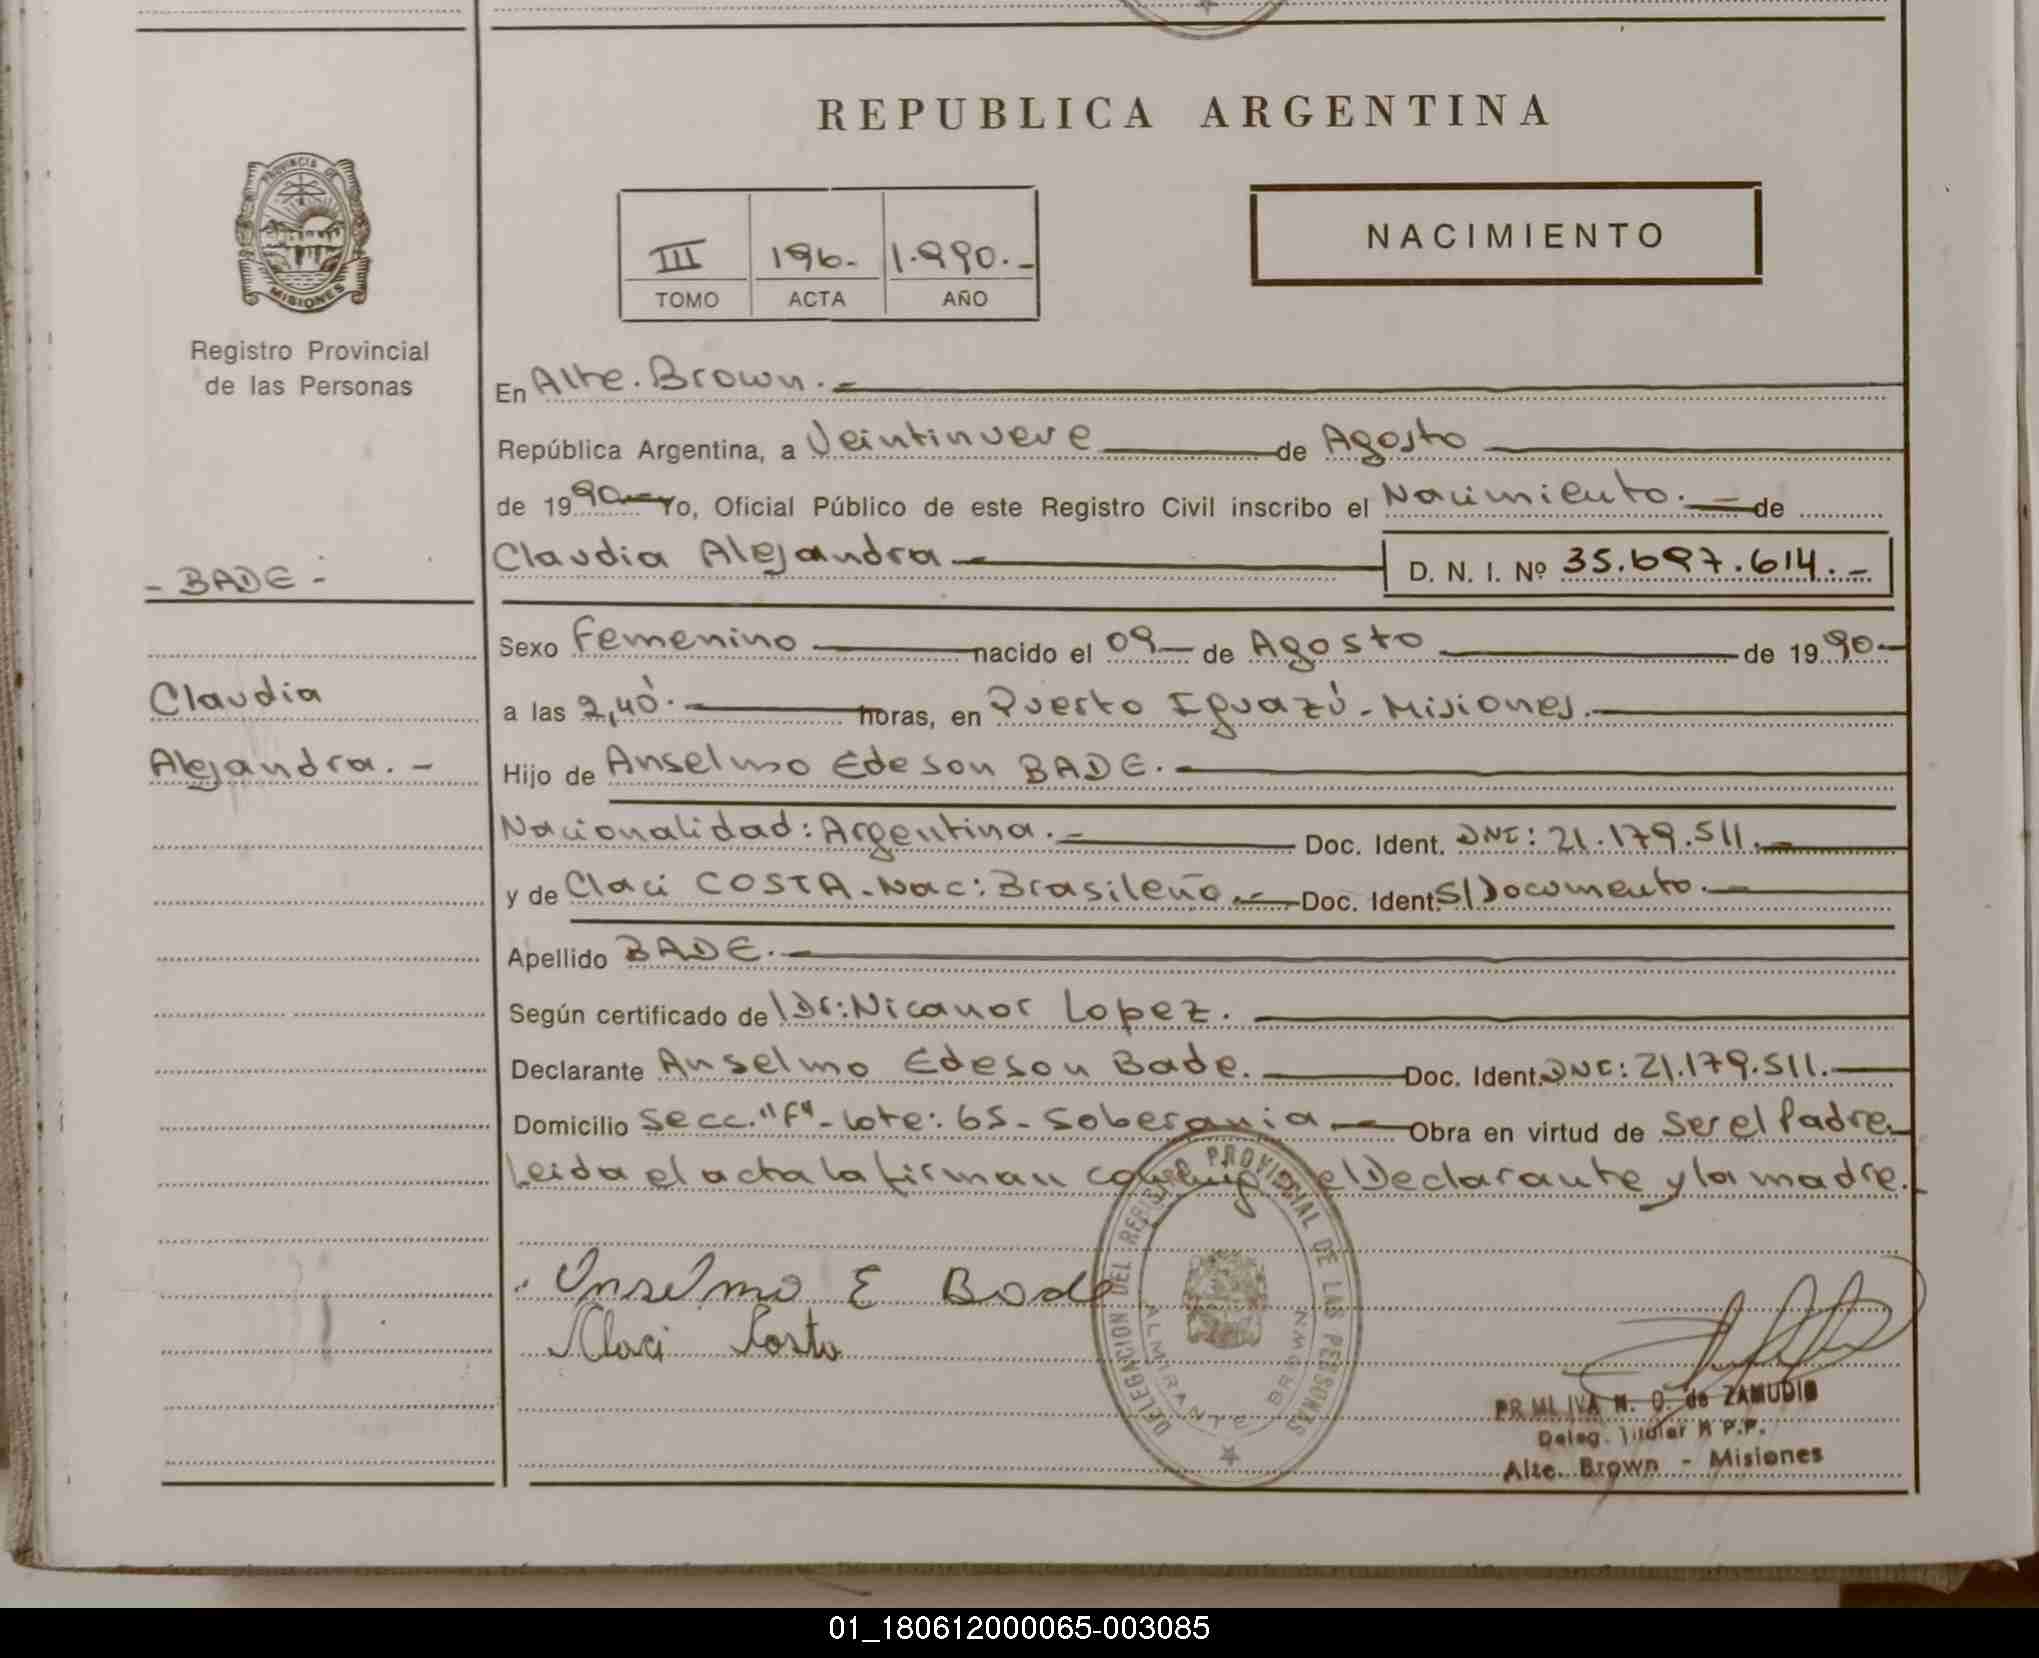 REPUBLICA ARGENTINA
PROVINCIA DE
MISIONES
Registro Provincial
de las Personas
III 196.- 1.990.-
TOMO ACTA AÑO
NACIMIENTO
En Alte. Brown.-
República Argentina, a Veintinueve de Agosto
de 1990- Yo, Oficial Público de este Registro Civil inscribo el Nacimiento.- de
Claudia Alejandra - D. N. I. Nº 35.697.614.-
- BADE -
Claudia
Alejandra. -
Sexo Femenino nacido el 09 de Agosto de 1990-
a las 2,40. horas, en Puerto Iguazú - Misiones.-
Hijo de Anselmo Edeson BADE.-
Nacionalidad: Argentina.- Doc. Ident. DNI: 21.179.511.-
y de Claci COSTA - Nac: Brasileño.- Doc. Ident. S/Documento.-
Apellido BADE.-
Según certificado de Dr: Nicanor Lopez.
Declarante Anselmo Edeson Bade. Doc. Ident. DNI: 21.179.511.-
Domicilio Secc. "F" - Lote: 65 - Soberania - Obra en virtud de ser el Padre.-
Leida el acta la firman conmigo el Declarante y la madre.-
Anselmo E Bade
Claci Costa
DELEGACION DEL REGISTRO PROVINCIAL DE LAS PERSONAS
ALMIRANTE BROWN
N. O. de ZAMUDIO
Deleg. Titular R P.P.
Alte. Brown - Misiones
01_180612000065-003085